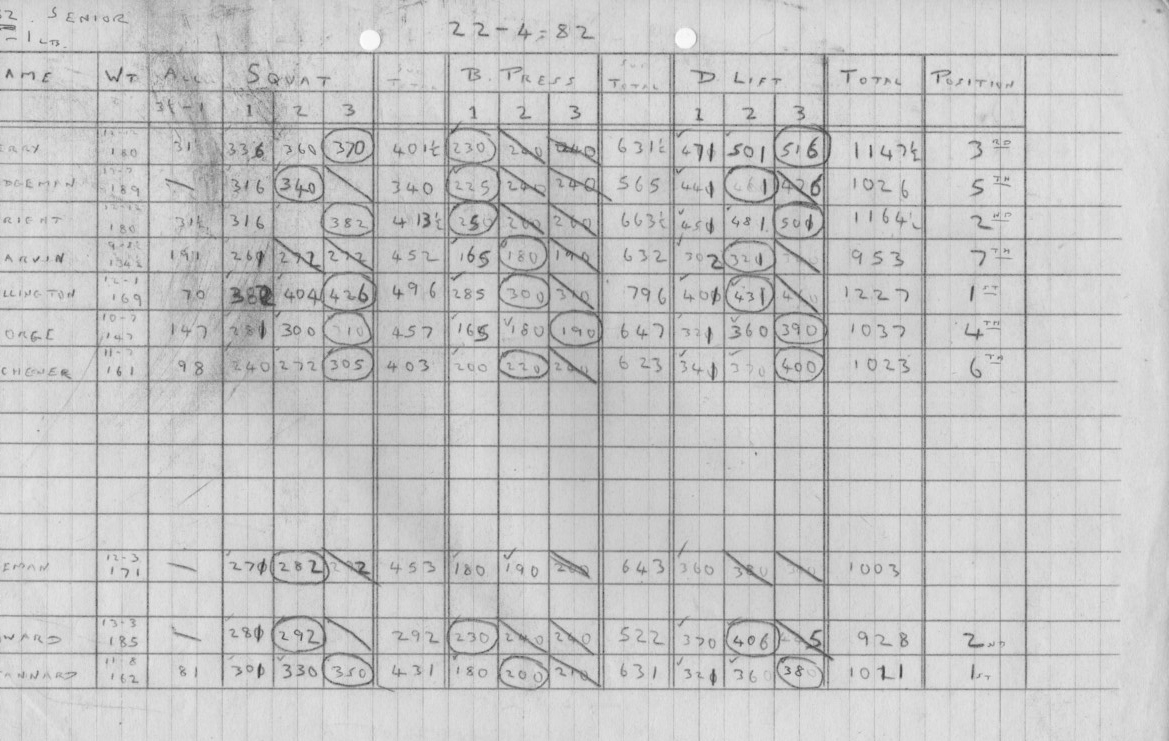 SENIOR
22-4-82
WT ALL SQUAT SUB TOTAL B. PRESS SUB TOTAL D LIFT TOTAL POSITION
3½-1 1 2 3 1 2 3 1 2 3
180 31½ 336 360 370 401½ 230 240 240 631½ 471 501 516 1147½ 3RD
11-7
DGEMAN 189 — 316 340 340 225 240 240 565 441 461 476 1026 5TH
RIGHT 180 31½ 316 382 413½ 250 260 260 663½ 451 481 501 1164½ 2ND
ARVIN 191 261 272 272 452 165 180 190 632 302 321 953 7TH
12-1
LLINGTON 169 70 382 404 426 496 285 300 310 796 401 431 1227 1ST
10-7
ORGE 147 147 281 300 310 457 165 180 190 647 321 360 390 1037 4TH
11-7
CHENER 161 98 240 272 305 403 200 220 623 341 370 400 1023 6TH
12-3
EMAN 171 — 270 282 292 453 180 190 200 643 360 380 1003
13-3
WARD 185 — 281 292 292 230 240 240 522 370 406 928 2ND
11-8
ANNARD 162 81 301 330 350 431 180 200 210 631 321 360 380 1011 1ST